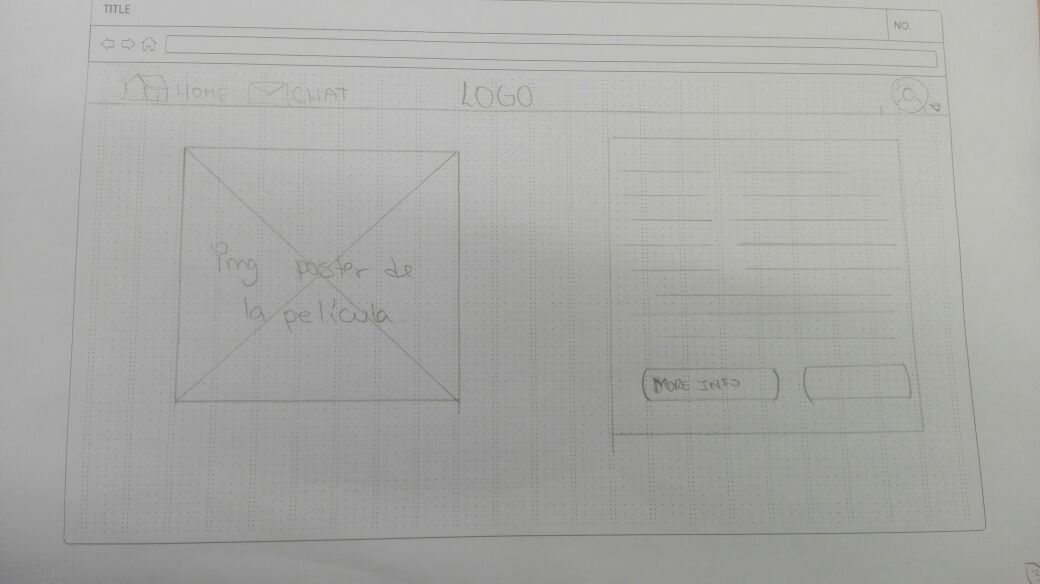 TITLE
NO.
HOME CHAT LOGO
img poster de
la película
MORE INFO